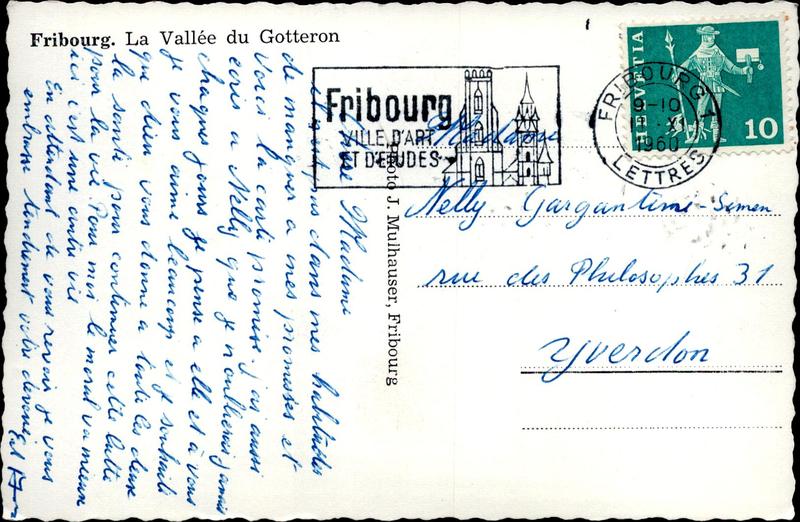 Fribourg. La Vallée du Gotteron
Fribourg
VILLE D'ART
ET D'ETUDES
FRIBOURG 1
9-10
XI
1960
LETTRES
HELVETIA
10
Madame
Nelly Gargantini-Simen
rue des Philosophes 31
Yverdon
Photo J. Mulhauser, Fribourg
Madame
pas dans mes habitudes
de manquer a mes promesses et
Voici la carte promise, j'ai aussi
ecris a Nelly que je n'oublierai jamais
chaques jours je pense a elle et a vous
je vous aime beaucoup et je souhaite
que dieu vous donne a toute les deux
la santé pour continuer cette lutte
pour la vie Pour moi le moral va mieux
ici c'est une autre vie
En attendant de vous revoir je vous
embrasse tendrement votre devoué